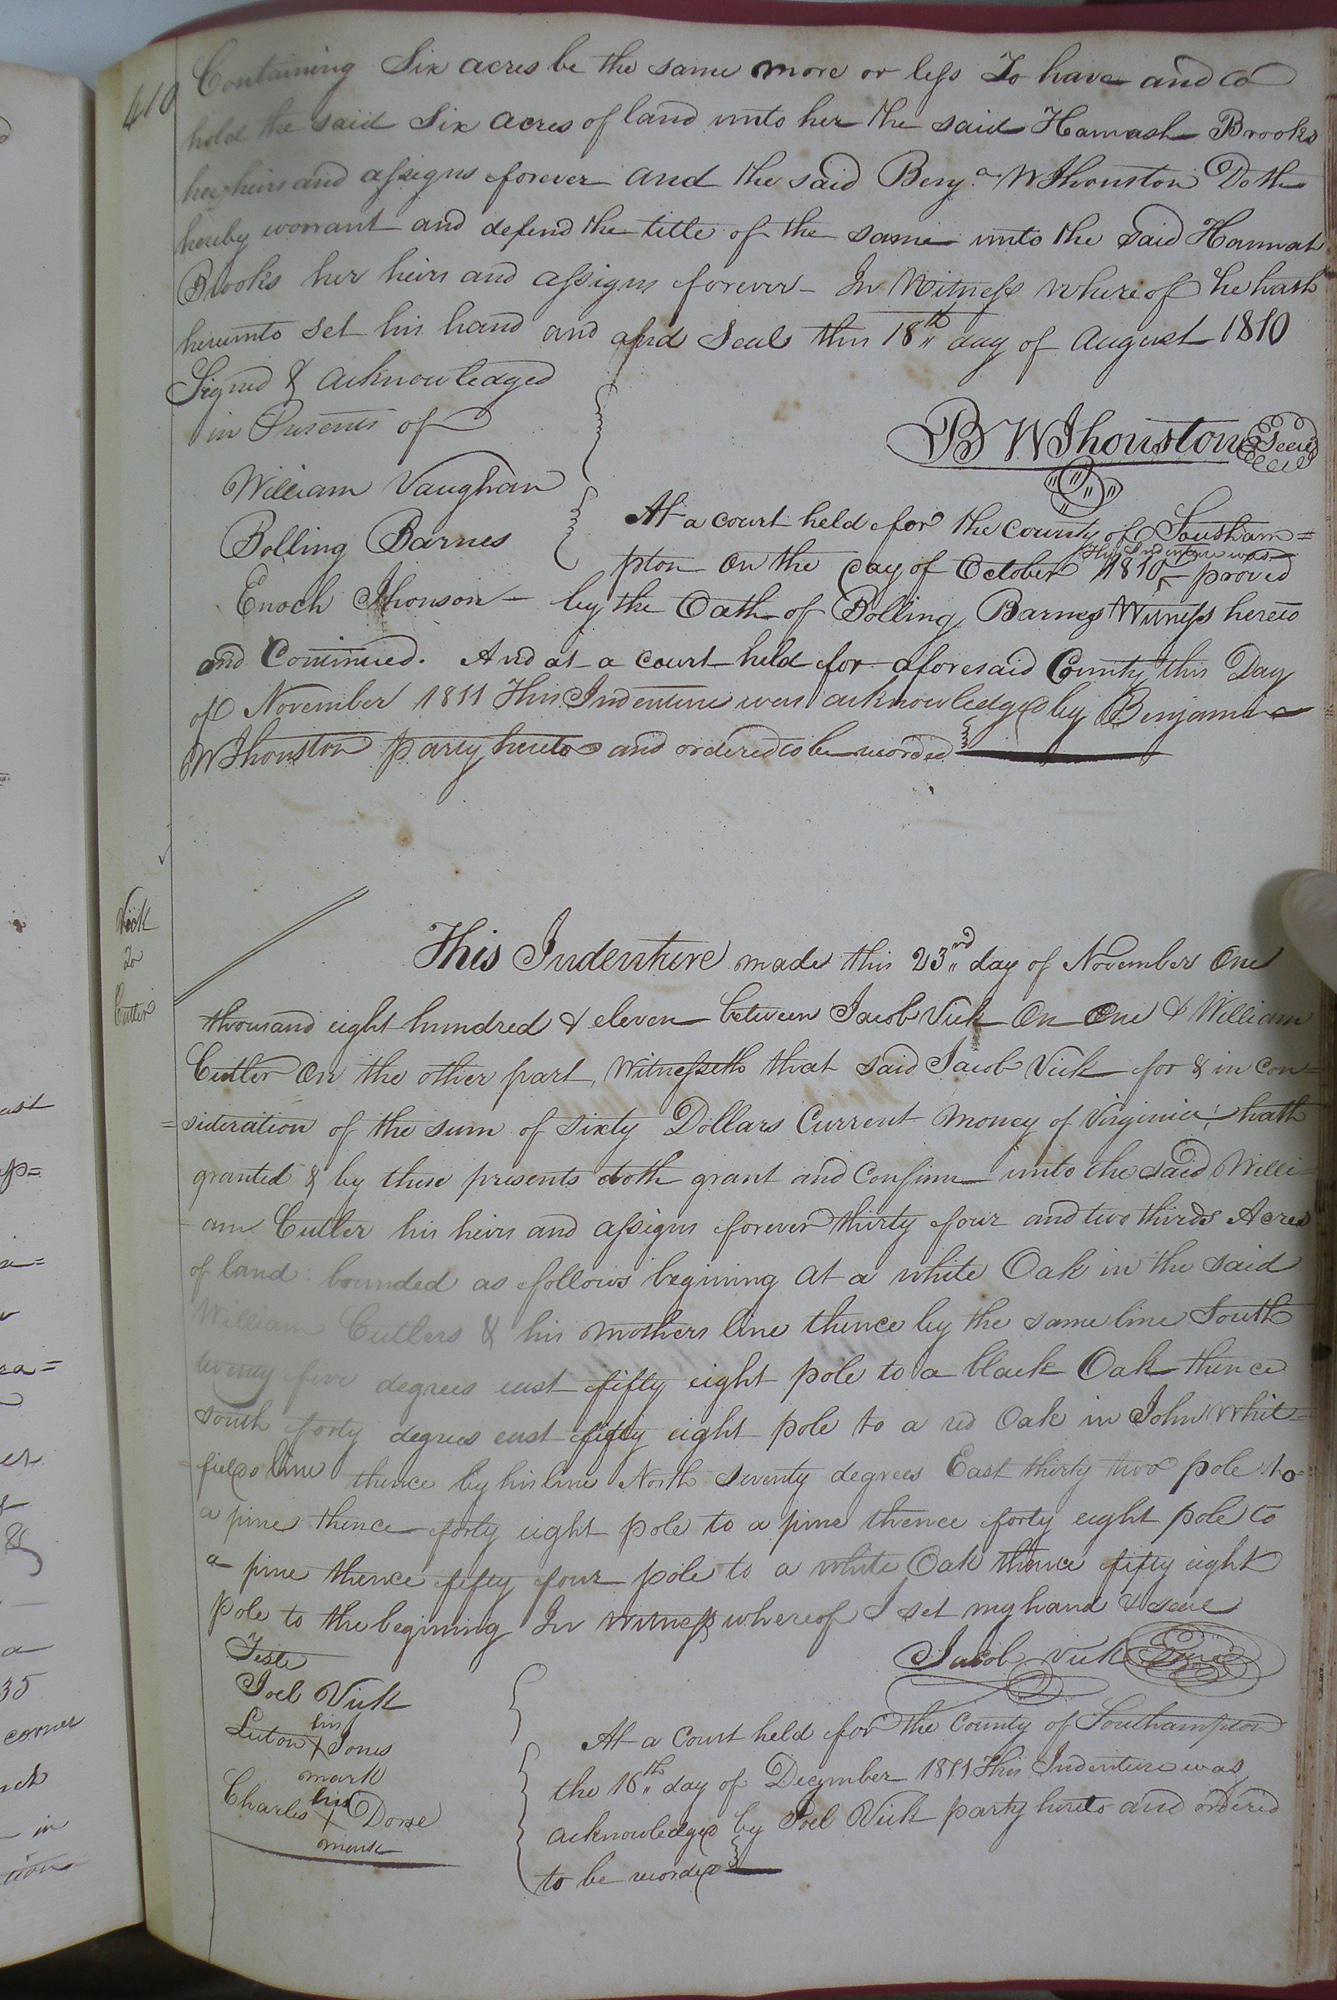 410
Containing Six acres be the same more or less To have and to
hold the said Six acres of land unto her the said Hannah Brooks
her heirs and assigns forever and the said Benja. W Jhonston Doth
hereby worrant and defend the title of the same unto the said Hannah
Brooks her heirs and assigns forever - In Witness whereof he hath
hereunto set his hand and and Seal this 18th day of August 1810
Signed & acknowledged
in Presents of
B W Jhonston Seal
William Vaughan
Bolling Barnes
Enoch Jhonson
At a court held for the county of Southam=
pton on the day of October 1810 This Indenture was proved
by the Oath of Bolling Barnes Witness hereto
and Continued. And at a court held for aforesaid County this Day
of November 1811 This Indenture was acknowledged by Benjamin
W Jhonston party hereto and ordered to be recorded
Vick
To
Cutler
This Indenture made this 23rd day of November One
thousand eight hundred & eleven between Jacob Vick On One & William
Cutler On the other part, Witnesseth that said Jacob Vick for & in con=
=sideration of the sum of sixty Dollars Current Money of Virginia; hath
granted & by these presents doth grant and Confirm unto the said Willi=
=am Cutler his heirs and assigns forever thirty four and two thirds Acres
of land: bounded as follows begining at a white Oak in the said
William Cutlers & his mothers line thence by the same line South
twenty five degrees east fifty eight pole to a black Oak thence
south forty degrees east fifty eight pole to a red Oak in John Whit=
=fields line thence by his line North seventy degrees East thirty two pole to
a pine thence forty eight pole to a pine thence forty eight pole to
a pine thence fifty four pole to a white Oak thence fifty eight
pole to the begining In Witness whereof I set my hand & seal
Teste
Jacob Vick Seal
Joel Vick
his
Luton X Jones
mark
his
Charles X Dorse
mark
At a Court held for the County of Southampton
the 16th day of December 1811 This Indenture was
acknowledged by Joel Vick party hereto and ordered
to be recorded